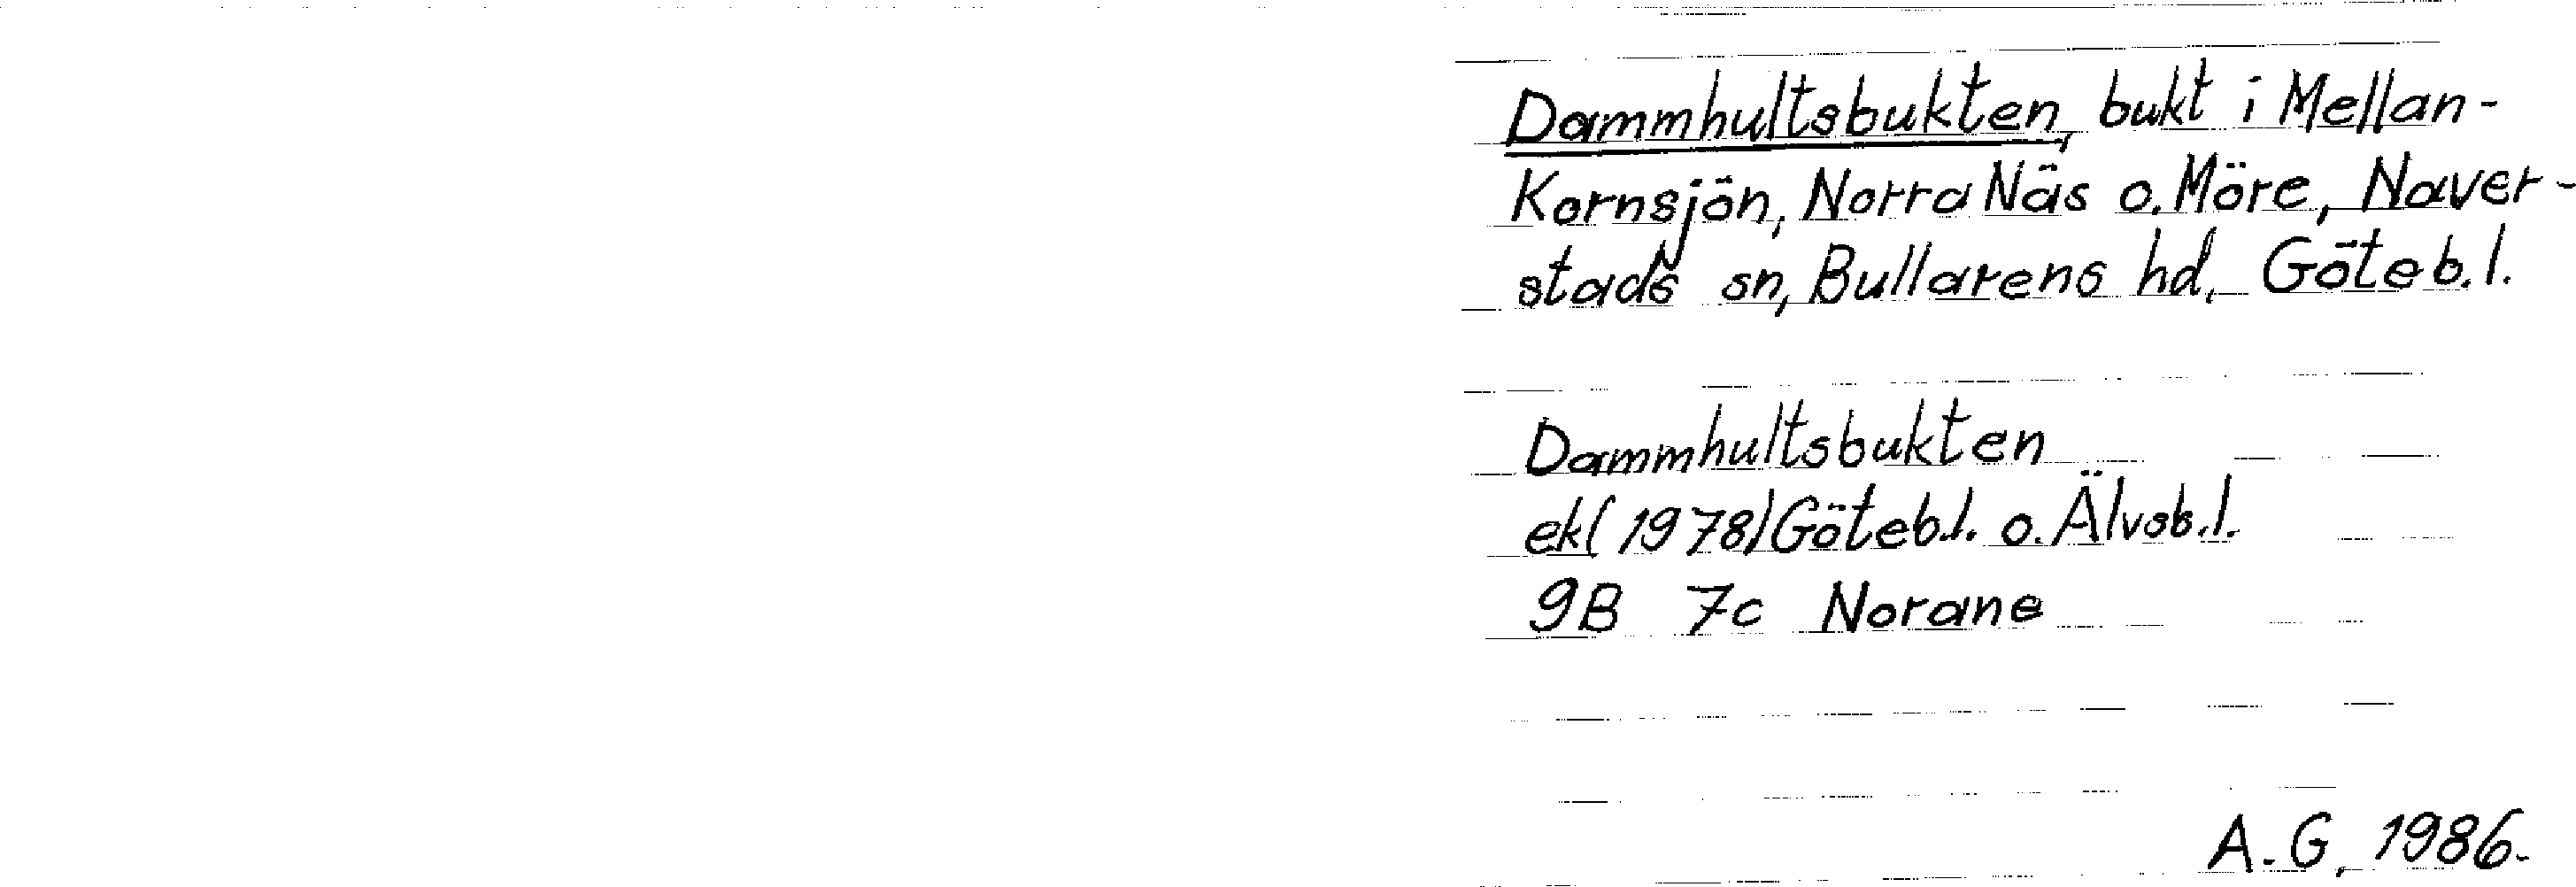 Dammhultsbukten, bukt i Mellan-
Kornsjön, Norra Näs o. Möre, Naver-
stads sn, Bullarens hd, Göteb.l.
Dammhultsbukten
ek(1978)Göteb.l. o. Älvsb.l.
9B 7c Norane
A.G, 1986.